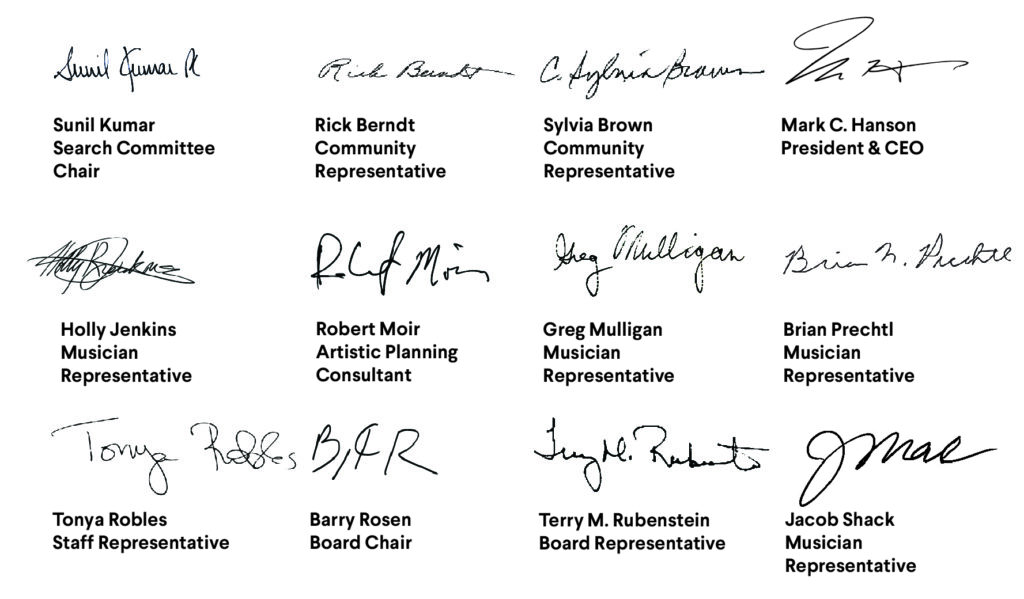 Sunil Kumar
Rick Berndt
C. Sylvia Brown
Sunil Kumar
Search Committee
Chair
Rick Berndt
Community
Representative
Sylvia Brown
Community
Representative
Mark C. Hanson
President & CEO
Holly Jenkins
Greg Mulligan
Brian N. Prechtl
Holly Jenkins
Musician
Representative
Robert Moir
Artistic Planning
Consultant
Greg Mulligan
Musician
Representative
Brian Prechtl
Musician
Representative
Tonya Robles
Terry M. Rubenstein
Tonya Robles
Staff Representative
Barry Rosen
Board Chair
Terry M. Rubenstein
Board Representative
Jacob Shack
Musician
Representative